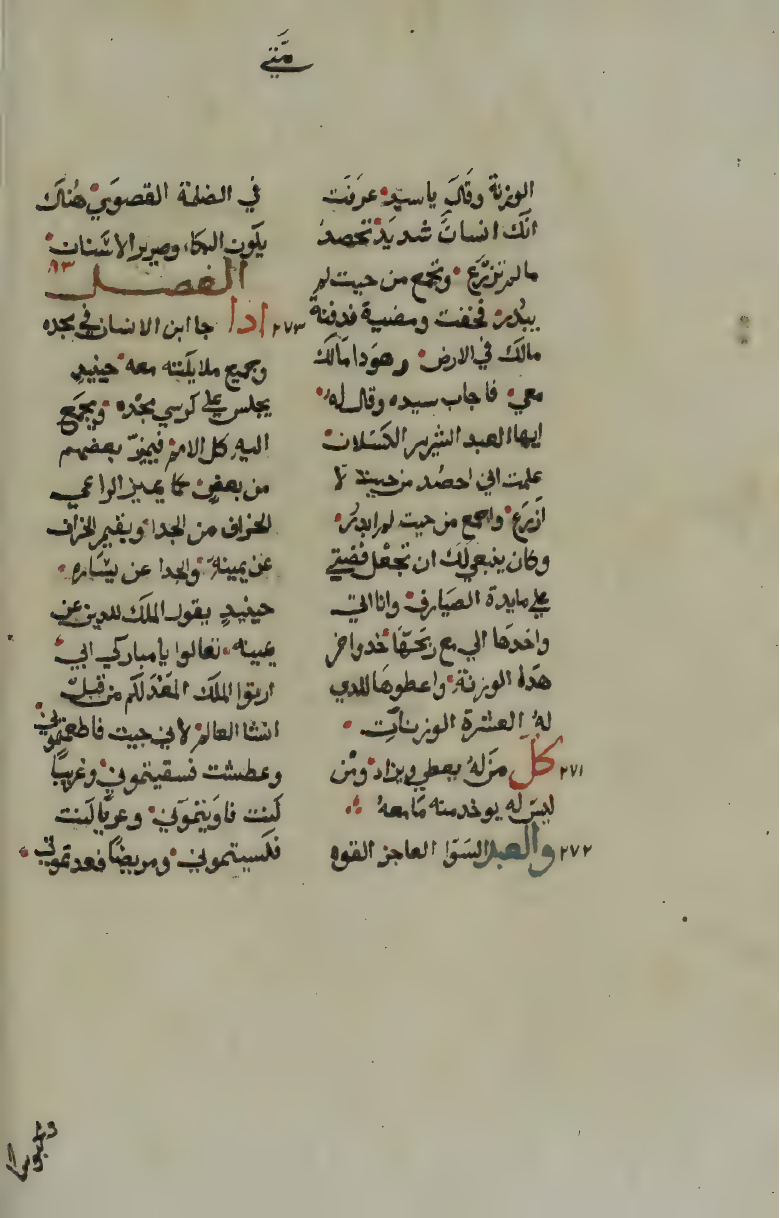 متي
الوزنة وقال يا سيد عرفت
انك انسان شديد تحصد
ما لم تزرع وتجمع من حيت لم
تبدر فخفت ومضية فدفنة
مالك في الارض وهودا مالك
معي فاجاب سيده وقال له
ايها العبد الشرير الكسلان
علمت اني احصد من حيت لا
ازرع واجمع من حيت لم ابدر
وكان ينبغي لك ان تجعل فضتي
علي مايدة الصيارف وانا اتي
واخدها الي مع ربحها خدوا
هده الوزنة واعطوها للدي
له العشرة الوزنات
٢٧١ كل من له يعطي ويزاد ومن
ليس له يوخد منه ما معه
٢٧٢ والعبد السوا العاجز القوه
في الضلمة القصوي هناك
يكون البكاء وصرير الاسنان
الفصل ٩٣
٢٧٣ ادا جا ابن الانسان في مجده
وجميع ملايكته معه حينيد
يجلس علي كرسي مجده ويجمع
اليه كل الامم فيميز بعضهم
من بعض كما يميز الراعي
الخراف من الجدا ويقيم الخراف
عن يمينه والجدا عن يساره
حينيد يقول الملك للدين عن
يمينه تعالوا يا مباركي ابي
ارتوا الملك المعد لكم من قبل
انشا العالم لاني جعت فاطعمتموني
وعطشت فسقيتموني وغريبا
كنت فاويتموني وعريا كنت
فكسيتموني ومريضا فعدتموني